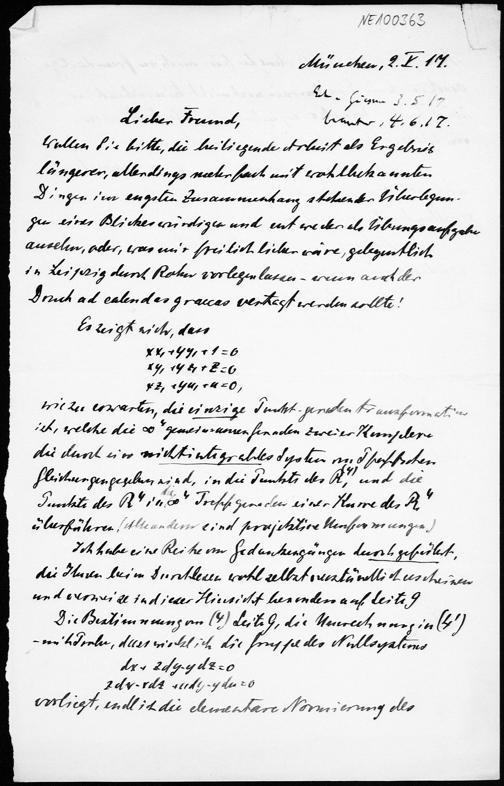 NE100363
München, 2. V. 17.
3.5.17
4.6.17.
Lieber Freund,
wollen Sie bitte, die beiliegende Arbeit als Ergebnis
längerer, allerdings mehrfach mit wohlbekannten
Dingen im engsten Zusammenhang stehender Überlegun-
gen eines Blickes würdigen und entweder als Übungsaufgabe
ansehen, oder, was mir freilich lieber wäre, gelegentlich
in Leipzig durch Rohn vorlegen lassen - wenn auch der
Druck ad calendas graecas vertagt werden sollte!
Es zeigt sich, dass
xx₁+yy₁+1=0
xy₁+yz₁+z=0
xz₁+yu₁+u=0,
wie zu erwarten, die einzige Punkt-geraden transformation
ist, welche die ∞⁴ gemeinsamen Geraden zweier Komplexe
die durch ein nicht integrables System von Pfaffschen
Gleichungen gegeben sind, in die Punkte des R₁⁴, und die
Punkte des R⁴ in die ∞⁴ Treffgeraden einer Kurve des R₁⁴
überführen. (Alle anderen sind projektive Umformungen)
Ich habe eine Reihe von Gedankengängen durchgeführt,
die Ihnen beim Durchlesen wohl selbstverständlich erscheinen
und verweise in dieser Hinsicht besonders auf Seite 9
Die Bestimmung von (4) Seite 9, die Umrechnung in (4')
- mit Probe, dass wirklich die Gruppe des Nullsystems
dx + zdy - ydz = 0
zdx - xdz + udy - ydu = 0
vorliegt, endlich die elementare Normierung des